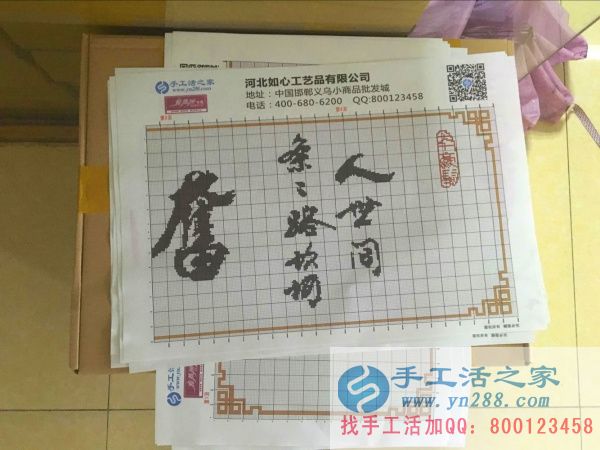 手工活之家
www.yn288.com
河北如心工艺品有限公司
地址：中国邯郸义乌小商品批发城
电话：400-680-6200 QQ:800123458
人世间
条条路坎坷
奮
手工活之家
手工活之家
www.yn288.com
找手工活加QQ：800123458